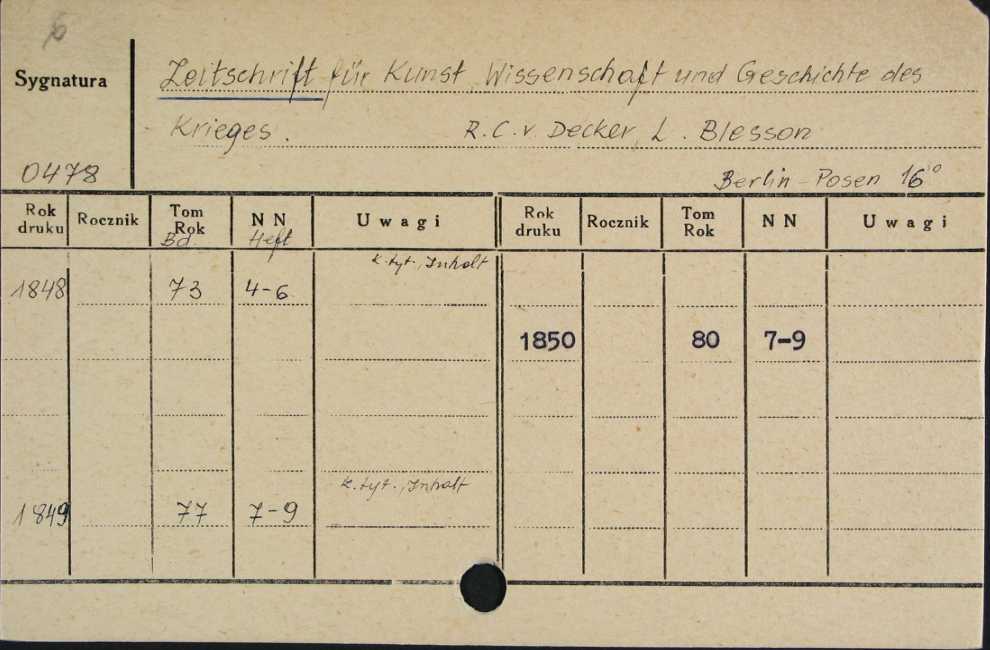 6
Sygnatura
Zeitschrift für Kunst, Wissenschaft und Geschichte des
Krieges. R. C. v. Decker, L. Blesson
0478
Berlin - Posen 16°
Rok druku Rocznik Tom Rok N N U w a g i Rok druku Rocznik Tom Rok N N U w a g i
Bd. Heft
k. tyt., Inhalt
1848 73 4-6
1850 80 7-9
k. tyt., Inhalt
1849 77 7-9